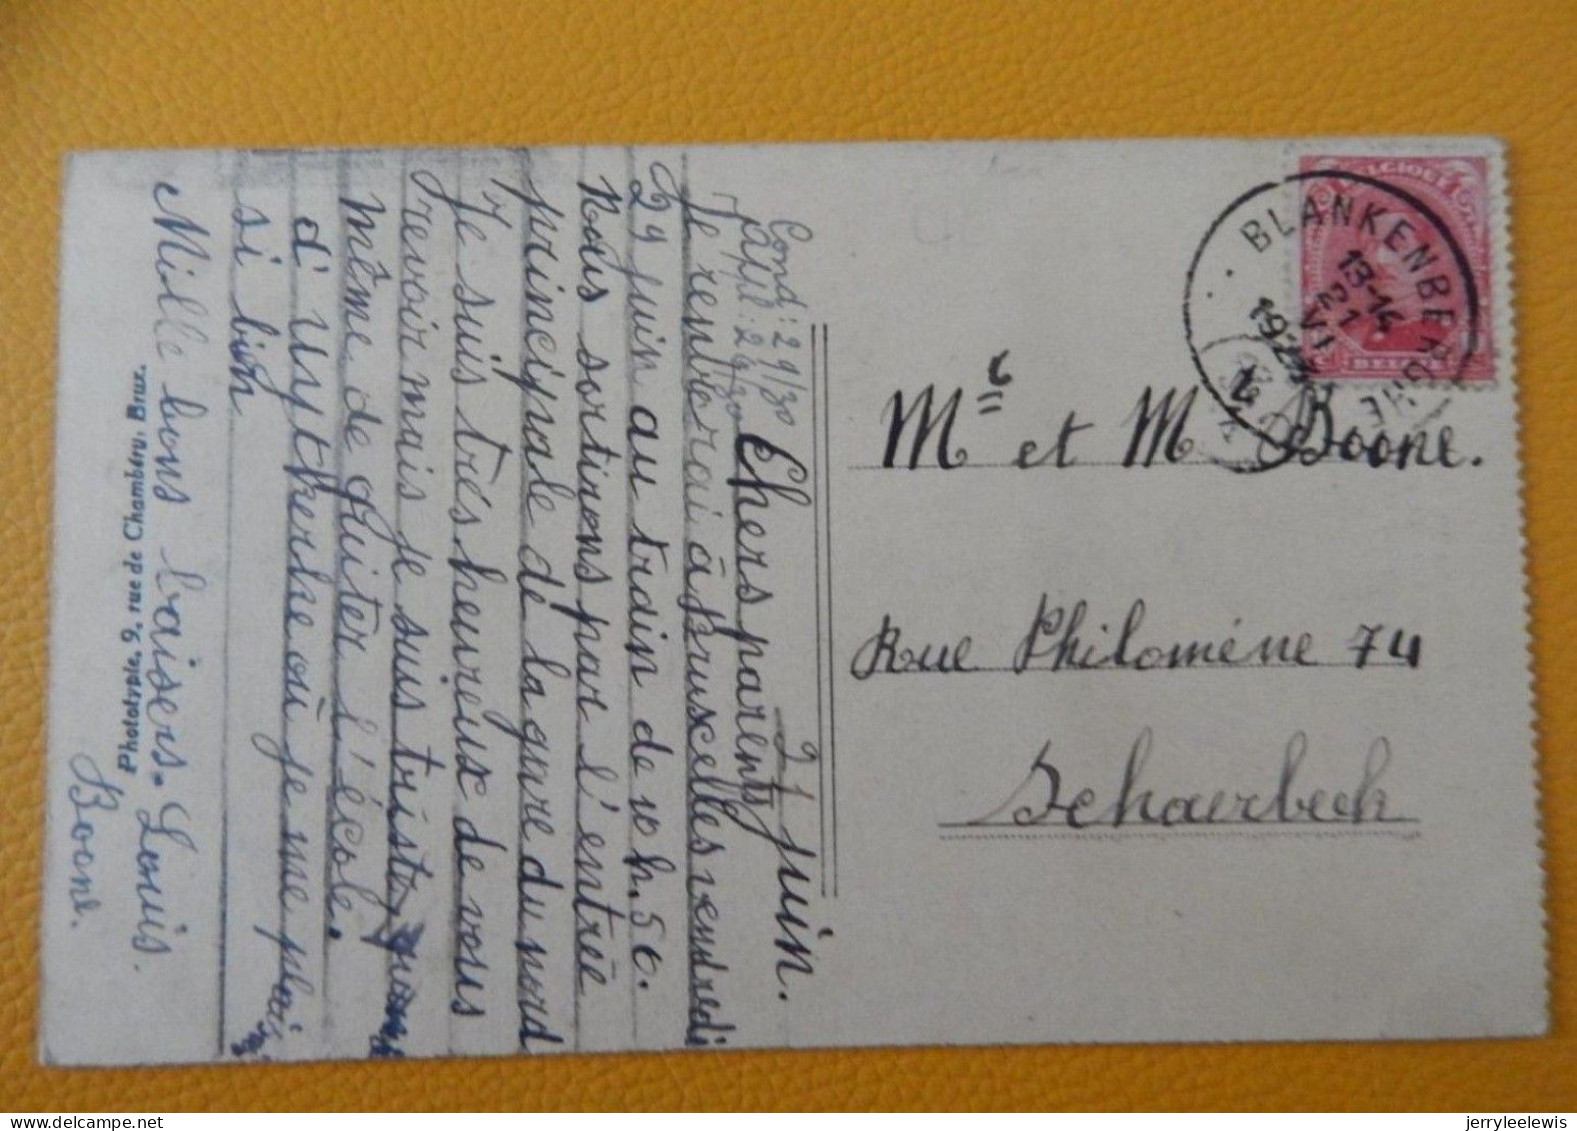 Cond: 29/30
Appl: 29/30
21 juin.
Chers parents
Je rentrerai à Bruxcelles vendredi
29 juin au train de 10 h. 50.
Nous sortirons par l'entrée
principale de la gare du nord
Je suis trés heureux de vous
revoir mais je suis triste quand
même de quiter l'école.
d'Uytkerke où je me plai
si bien
Mille bons baisers. Louis
Boone.
Phototypie, 9, rue de Chambéry, Brux.
BELGIQUE
BLANKENBERGHE
13-14
21
VI
192
Mr et Me Boone.
Rue Philoméne 74
Schaerbeek
jerryleelewis